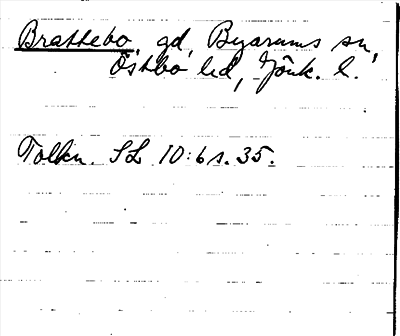 Brattebo, gd, Byarums sn,
Östbo hd, Jönk. l.
Tolkn. SL 10:6 s. 35.